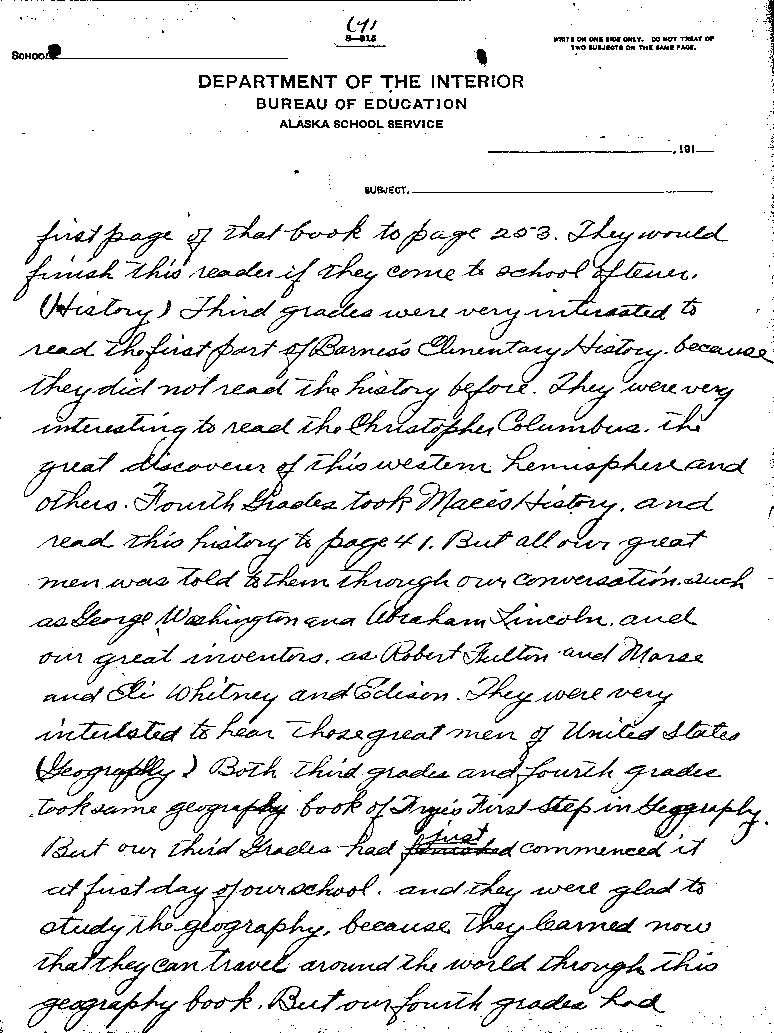 (4)
8—915
WRITE ON ONE SIDE ONLY. DO NOT TREAT OF
TWO SUBJECTS ON THE SAME PAGE.
SCHOOL
DEPARTMENT OF THE INTERIOR
BUREAU OF EDUCATION
ALASKA SCHOOL SERVICE
, 191
SUBJECT.
first page of that book to page 203. They would
finish this reader if they come to school oftener.
(History) Third grades were very interested to
read the first part of Barnes's Elmentary History. because
they did not read the history before. They were very
interesting to read the Christopher Columbus. the
great discoverer of this western hemisphere and
others. Fourth Grades took Mace's History, and
read this history to page 41. But all our great
men was told to them through our conversation. such
as George Washington and Abraham Lincoln. and
our great inventors. as Robert Fulton and Morse
and Eli Whitney and Edison. They were very
interested to hear those great men of United States
(Geography) Both third grades and fourth grades
took same geography book of Frye's First Step in Geography.
just
But our third Grades had finished commenced it
at first day of our school. and they were glad to
study the geography, because they learned now
that they can travel around the world through this
geography book. But our fourth grades had